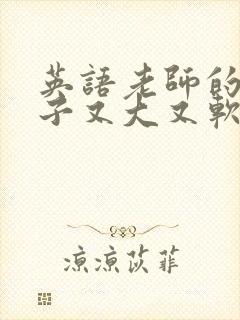 英語老師的
子又大又軟
涼涼苡菲